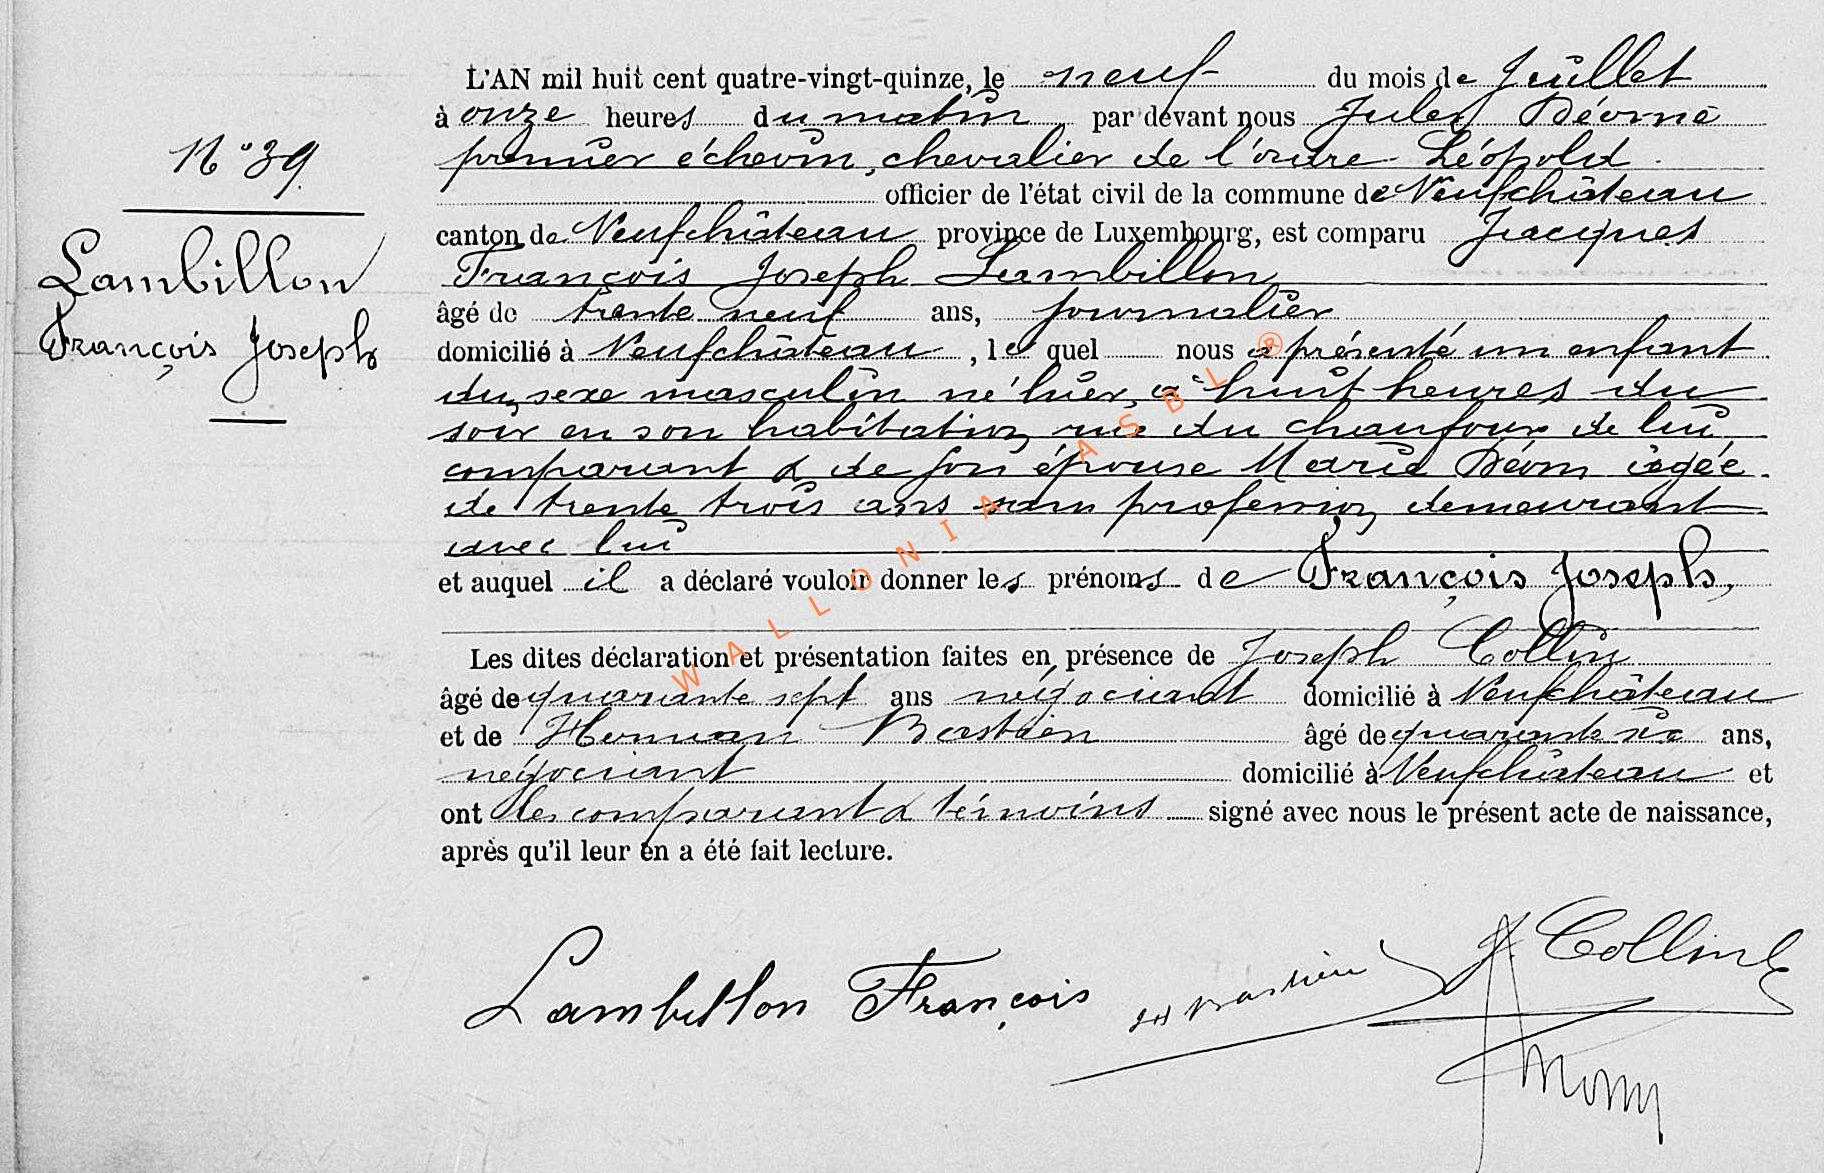 N° 39
Lambillon
François Joseph
L'AN mil huit cent quatre-vingt-quinze, le neuf du mois de Juillet
à onze heures du matin par devant nous Jules Déome
premier échevin, chevalier de l'ordre Léopold
officier de l'état civil de la commune de Neufchâteau
canton de Neufchâteau province de Luxembourg, est comparu Jacques
François Joseph Lambillon
âgé de trente neuf ans, journalier
domicilié à Neufchâteau, le quel nous a présenté un enfant
du sexe masculin né hier, à huit heures du
soir en son habitation rue du chaufour de lui
comparant & de son épouse Marie Déom âgée
de trente trois ans sans profession demeurant
avec lui
et auquel il a déclaré vouloir donner les prénoms de François Joseph,
Les dites déclaration et présentation faites en présence de Joseph Collin
âgé de quarante sept ans négociant domicilié à Neufchâteau
et de Herman Bastien âgé de quarante six ans,
négociant domicilié à Neufchâteau et
ont les comparant & témoins signé avec nous le présent acte de naissance,
après qu'il leur en a été fait lecture.
Lambillon François H Bastien J. Collin
WALLONIA ASBL ®